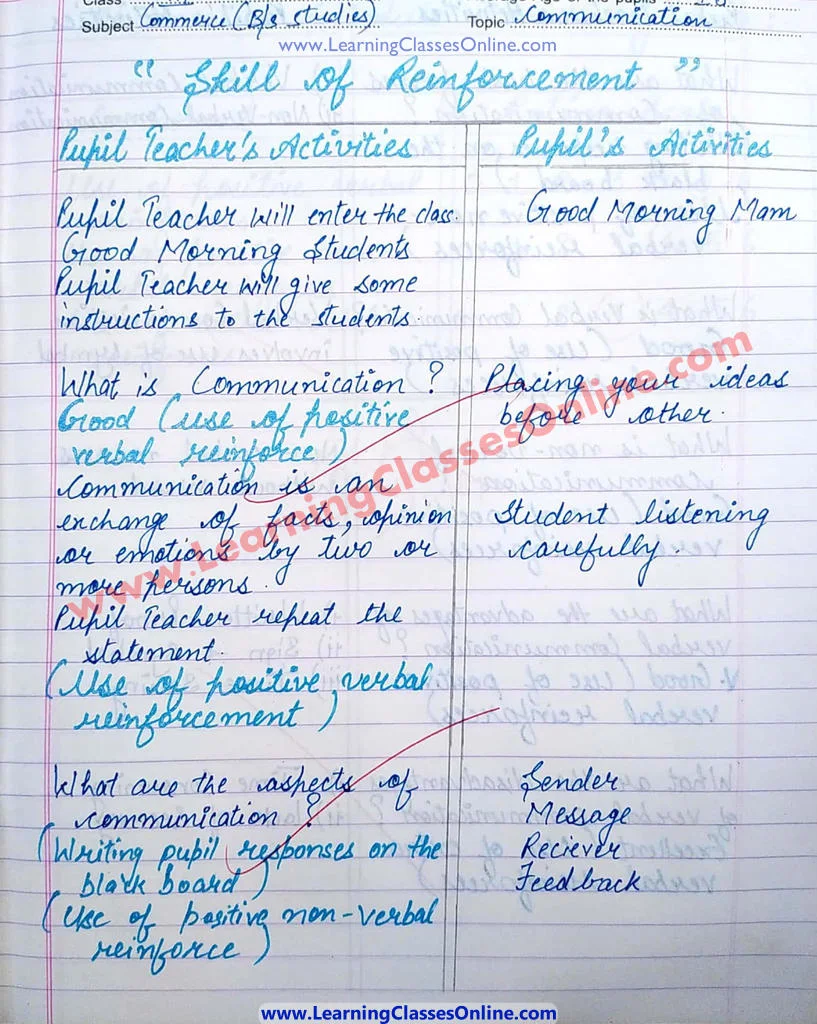 Class
Subject Commerce (B/s studies)
Topic Communication
www.LearningClassesOnline.com
" Skill of Reinforcement "
Pupil Teacher's Activities
Pupil's Activities
Pupil Teacher will enter the class.
Good Morning Students
Pupil Teacher will give some
instructions to the students.
Good Morning Mam
What is Communication ?
Good (use of positive
verbal reinforce)
Placing your ideas
before other.
Communication is an
exchange of facts, opinion
or emotions by two or
more persons.
Pupil Teacher repeat the
statement.
(Use of positive verbal
reinforcement)
Student listening
carefully.
What are the aspects of
communication ?
(Writing pupil responses on the
black board)
(Use of positive non-verbal
reinforce)
Sender
Message
Reciever
Feedback
www.LearningClassesOnline.com
www.LearningClassesOnline.com